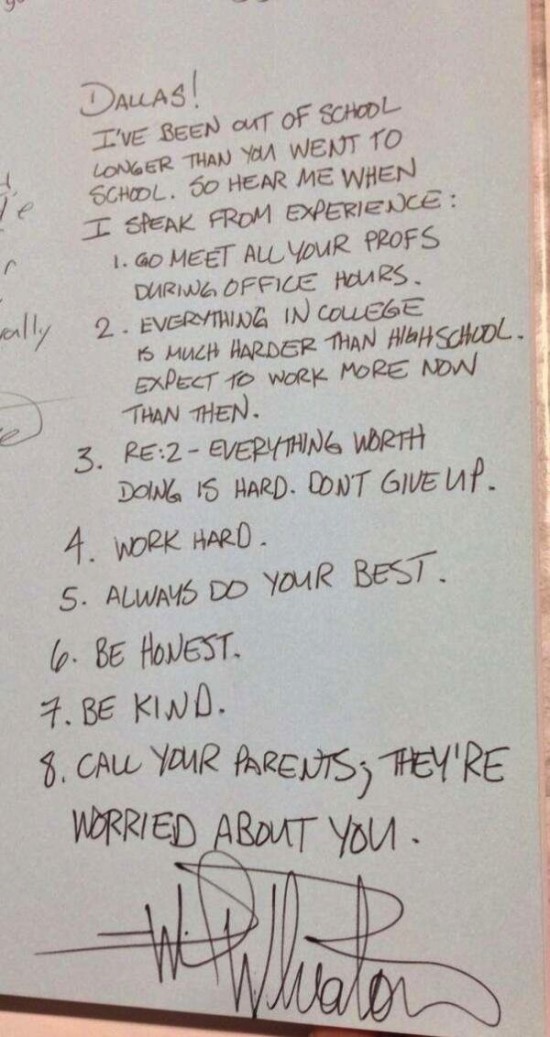 DALLAS!
I'VE BEEN OUT OF SCHOOL
LONGER THAN YOU WENT TO
SCHOOL. SO HEAR ME WHEN
I SPEAK FROM EXPERIENCE:
1. GO MEET ALL YOUR PROFS
DURING OFFICE HOURS.
2. EVERYTHING IN COLLEGE
IS MUCH HARDER THAN HIGH SCHOOL.
EXPECT TO WORK MORE NOW
THAN THEN.
3. RE:2 - EVERYTHING WORTH
DOING IS HARD. DONT GIVE UP.
4. WORK HARD.
5. ALWAYS DO YOUR BEST.
6. BE HONEST.
7. BE KIND.
8. CALL YOUR PARENTS; THEY'RE
WORRIED ABOUT YOU.
Wil Wheaton